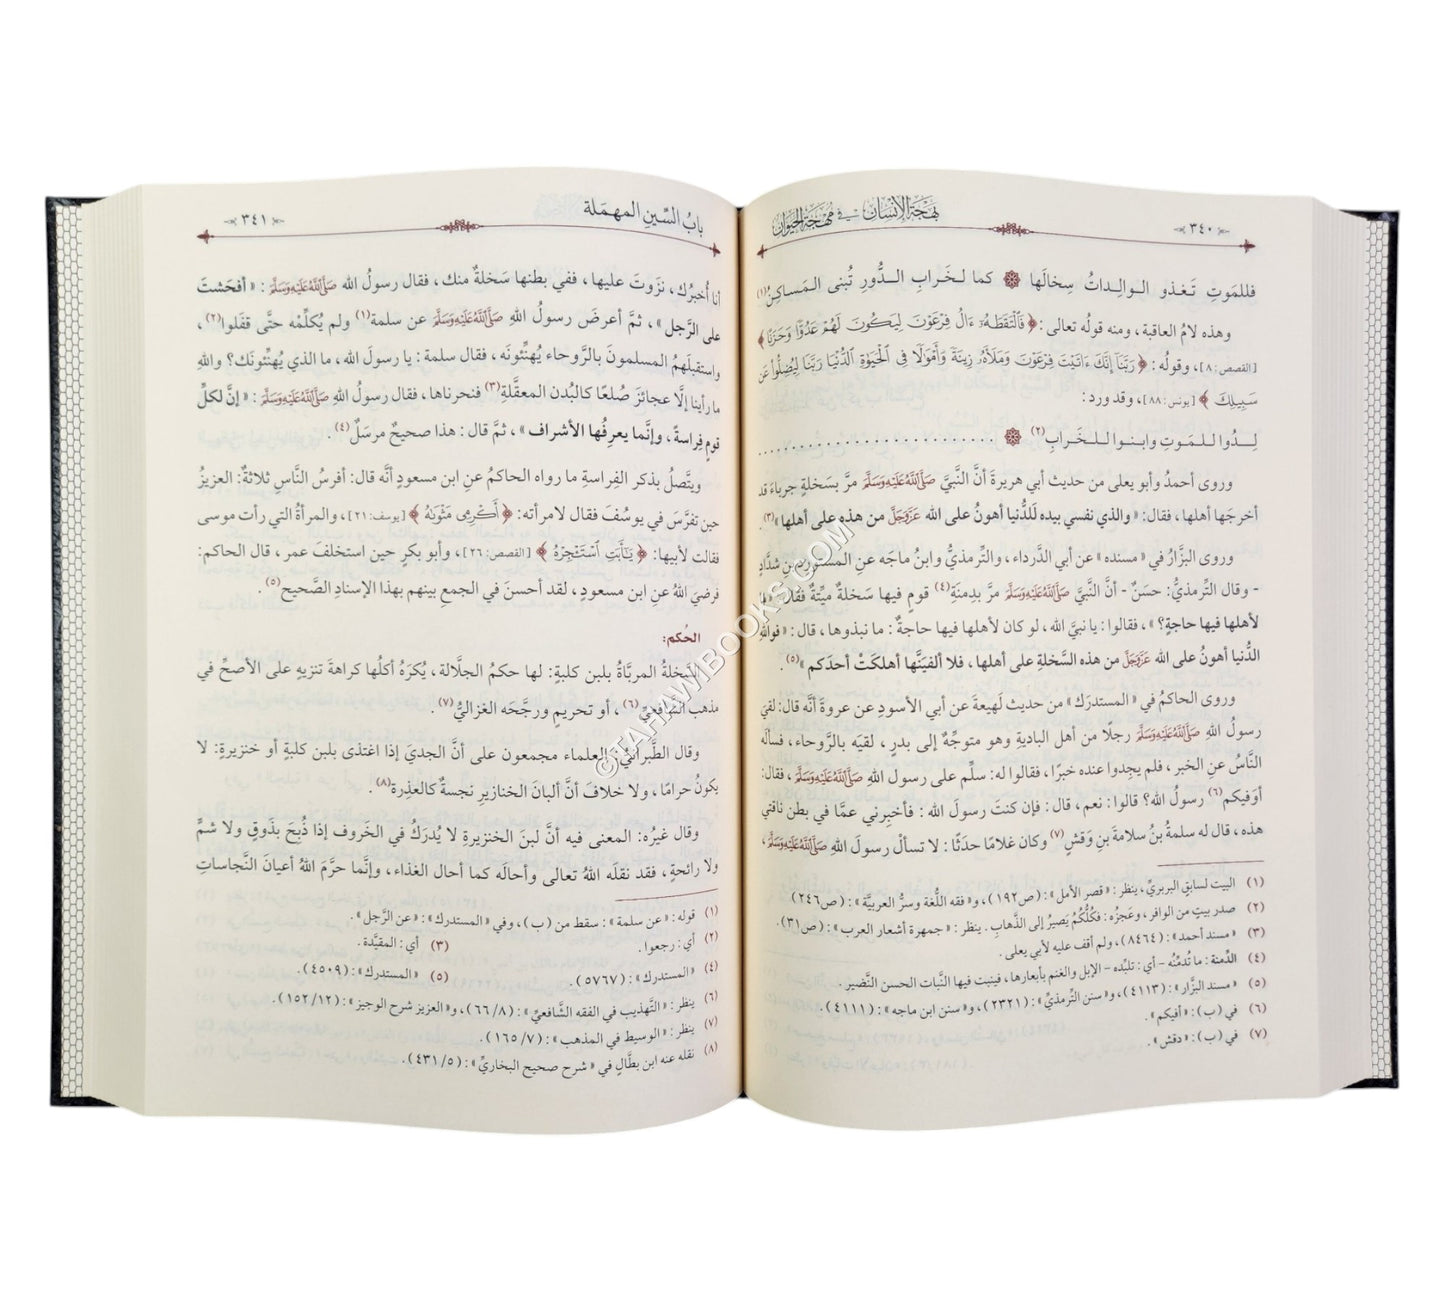 ٣٤٠
بهجة الإنسان في مهجة الحيوان
فللمَوتِ تَغذو الوالِداتُ سِخالَها ۞ كما لخَرابِ الدُّورِ تُبنى المَساكِنُ(١)
وهذه لامُ العاقبة، ومنه قولُه تعالى: ﴿فَٱلْتَقَطَهُۥٓ ءَالُ فِرْعَوْنَ لِيَكُونَ لَهُمْ عَدُوًّا وَحَزَنًا﴾
[القصص: ٨]، وقولُه: ﴿رَبَّنَآ إِنَّكَ ءَاتَيْتَ فِرْعَوْنَ وَمَلَأَهُۥ زِينَةً وَأَمْوَٰلًا فِى ٱلْحَيَوٰةِ ٱلدُّنْيَا رَبَّنَا لِيُضِلُّوا۟ عَن
سَبِيلِكَ﴾ [يونس: ٨٨]، وقد ورد:
لِدُوا للمَوتِ وابنوا للخَرابِ(٢) ۞ ................................
وروى أحمدُ وأبو يعلى من حديث أبي هريرةَ أنَّ النَّبيَّ صَلَّى اللَّهُ عَلَيْهِ وَسَلَّمَ مرَّ بسَخلةٍ جرباءَ قد
أخرجَها أهلها، فقال: «والذي نفسي بيده لَلدُّنيا أهونُ على الله عَزَّوَجَلَّ من هذه على أهلها»(٣).
وروى البزَّارُ في «مسنده» عن أبي الدَّرداء، والتِّرمذيُّ وابنُ ماجه عن المستورِدِ بنِ شدَّادٍ
- وقال التِّرمذيُّ: حسَنٌ - أنَّ النَّبيَّ صَلَّى اللَّهُ عَلَيْهِ وَسَلَّمَ مرَّ بدِمنةِ(٤) قومٍ فيها سَخلةٌ ميِّتةٌ فقال: «ما
لأهلها فيها حاجةٍ؟»، فقالوا: يا نبيَّ الله، لو كان لأهلها فيها حاجةٌ؛ ما نبذوها، قال: «فوالله
الدُّنيا أهونُ على الله عَزَّوَجَلَّ من هذه السَّخلةِ على أهلها، فلا ألفيَنَّها أهلكَتْ أحدَكم»(٥).
وروى الحاكمُ في «المستدرَك» من حديث لَهيعةَ عن أبي الأسودِ عن عروةَ أنَّه قال: لقي
رسولُ اللهِ صَلَّى اللَّهُ عَلَيْهِ وَسَلَّمَ رجلًا من أهل الباديةِ وهو متوجِّهٌ إلى بدرٍ، لقيَه بالرَّوحاء، فسألَه
النَّاسُ عنِ الخبر، فلم يجِدوا عنده خبرًا، فقالوا له: سلِّم على رسول اللهِ صَلَّى اللَّهُ عَلَيْهِ وَسَلَّمَ، فقال:
أوَفيكم(٦) رسولُ الله؟ قالوا: نعم، قال: فإن كنتَ رسولَ الله؛ فأخبِرني عمَّا في بطن ناقتي
هذه، قال له سلمةُ بنُ سلامةَ بنِ وَقشٍ(٧) وكان غلامًا حدَثًا: لا تسألْ رسولَ اللهِ صَلَّى اللَّهُ عَلَيْهِ وَسَلَّمَ،
(١) البيت لسابقٍ البربريِّ، ينظر: «قصر الأمل»: (ص١٩٢)، و«فقه اللُّغة وسرُّ العربيَّة»: (ص٢٤٦).
(٢) صدر بيتٍ من الوافر، وعَجزُه: فكُلُّكُمُ يَصيرُ إلى الذَّهابِ. ينظر: «جمهرة أشعار العرب»: (ص٣١).
(٣) «مسند أحمد»: (٨٤٦٤)، ولم أقف عليه لأبي يعلى.
(٤) الدِّمنة: ما تُدمِّنُه - أي: تلبِّده - الإبل والغنم بأبعارها، فينبت فيها النَّبات الحسن النَّضير.
(٥) «مسند البزَّار»: (٤١١٣)، و«سنن التِّرمذيِّ»: (٢٣٢١)، و«سنن ابن ماجه»: (٤١١١).
(٦) في (ب): «أفيكم».
(٧) في (ب): «دقش».
باب السِّين المهمَلة
٣٤١
أنا أُخبرُك، نزَوتَ عليها، ففي بطنها سَخلةٌ منك، فقال رسولُ الله صَلَّى اللَّهُ عَلَيْهِ وَسَلَّمَ: «أفحَشتَ
على الرَّجل»، ثمَّ أعرضَ رسولُ اللهِ صَلَّى اللَّهُ عَلَيْهِ وَسَلَّمَ عن سلمة(١) ولم يُكلِّمْه حتَّى قفَلوا(٢)،
واستقبلَهمُ المسلمونَ بالرَّوحاء يُهنِّئونَه، فقال سلمة: يا رسولَ الله، ما الذي يُهنِّئونَك؟ واللهِ
ما رأينا إلَّا عجائزَ صُلعًا كالبُدن المعقَّلةِ(٣) فنحرناها، فقال رسولُ الله صَلَّى اللَّهُ عَلَيْهِ وَسَلَّمَ: «إنَّ لكلِّ
قومٍ فِراسةً، وإنَّما يعرِفُها الأشراف»، ثمَّ قال: هذا صحيحٌ مرسَلٌ(٤).
ويتَّصلُ بذكر الفِراسةِ ما رواه الحاكمُ عنِ ابن مسعودٍ أنَّه قال: أفرسُ النَّاسِ ثلاثةٌ: العزيزُ
حين تفرَّسَ في يوسُفَ فقال لامرأته: ﴿أَكْرِمِى مَثْوَىٰهُ﴾ [يوسف: ٢١]، والمرأةُ التي رأت موسى
فقالت لأبيها: ﴿يَٰٓأَبَتِ ٱسْتَـْٔجِرْهُ﴾ [القصص: ٢٦]، وأبو بكرٍ حين استخلفَ عمر، قال الحاكم:
فرضيَ اللهُ عنِ ابن مسعودٍ، لقد أحسنَ في الجمعِ بينهم بهذا الإسنادِ الصَّحيح(٥).
الحُكم:
السَّخلةُ المربَّاةُ بلبن كلبةٍ: لها حكمُ الجلَّالة، يُكرَهُ أكلُها كراهةَ تنزيهٍ على الأصحِّ في
مذهب الشَّافعيِّ(٦)، أو تحريمٍ ورجَّحَه الغزاليُّ(٧).
وقال الطَّبرانيُّ: العلماء مجمعون على أنَّ الجديَ إذا اغتذى بلبن كلبةٍ أو خنزيرة: لا
يكونُ حرامًا، ولا خلافَ أنَّ ألبانَ الخنازيرِ نجسةٌ كالعذِرة(٨).
وقال غيرُه: المعنى فيه أنَّ لبنَ الخنزيرة لا يُدرَكُ في الخَروف إذا ذُبِحَ بذَوقٍ ولا شمٍّ
ولا رائحةٍ، فقد نقلَه اللهُ تعالى وأحالَه كما أحال الغذاء، وإنَّما حرَّمَ اللهُ أعيانَ النَّجاساتِ
(١) قوله: «عن سلمة»: سقط من (ب)، وفي «المستدرك»: «عن الرَّجل».
(٢) أي: رجعوا.
(٣) أي: المقيَّدة.
(٤) «المستدرك»: (٥٧٦٧).
(٥) «المستدرك»: (٤٥٠٩).
(٦) ينظر: «التَّهذيب في الفقه الشَّافعيِّ»: (٨/ ٦٦)، و«العزيز شرح الوجيز»: (١٢/ ١٥٢).
(٧) ينظر: «الوسيط في المذهب»: (٧/ ١٦٥).
(٨) نقله عنه ابن بطَّالٍ في «شرح صحيح البخاريِّ»: (٥/ ٤٣١).
©TAHAWIBOOKS.COM